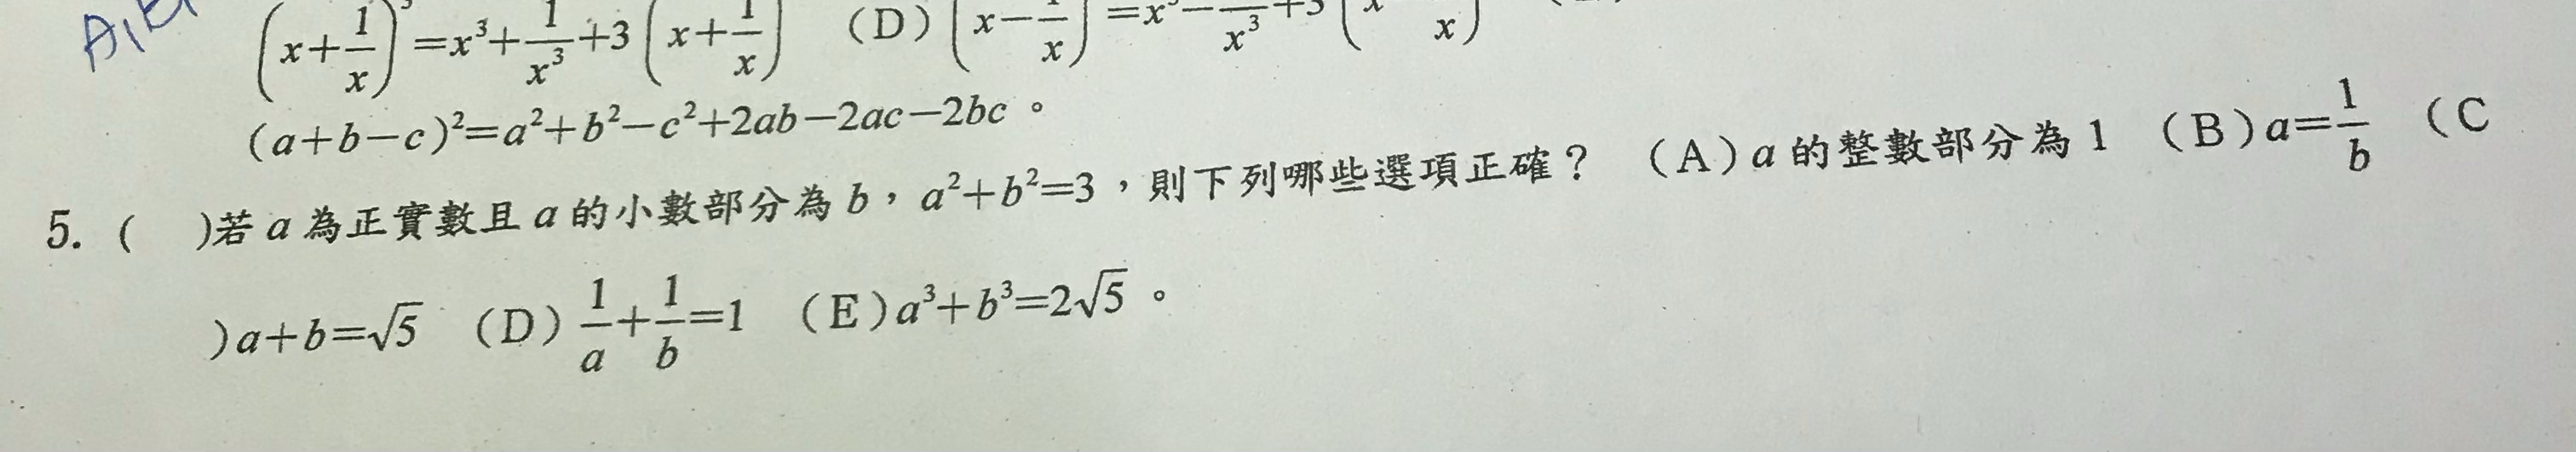 (x+1/x)³=x³+1/x³+3(x+1/x) (D)(x−1/x)=x³−1/x³+3(x x)
(a+b−c)²=a²+b²−c²+2ab−2ac−2bc。
5. ( )若 a 為正實數且 a 的小數部分為 b,a²+b²=3,則下列哪些選項正確? (A)a 的整數部分為 1 (B)a=1/b (C
)a+b=√5 (D)1/a+1/b=1 (E)a³+b³=2√5。